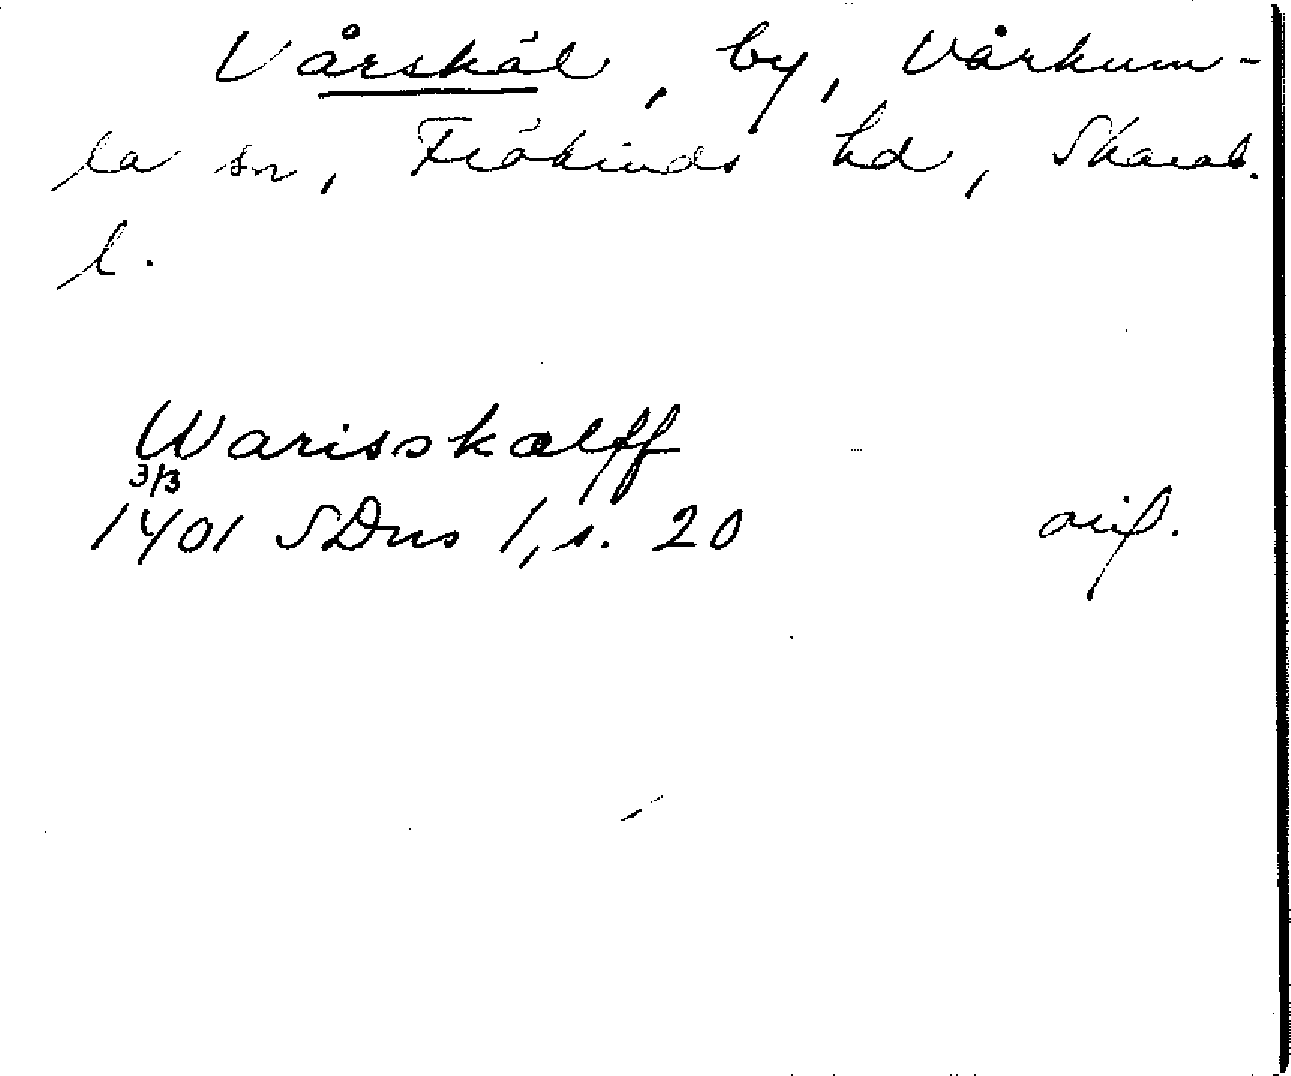 Vårskäl, by, Vårkum-
la sn, Frökinds hd, Skarab.
l.
Warisskælff
3/3
1401 SDns 1, s. 20 orig.